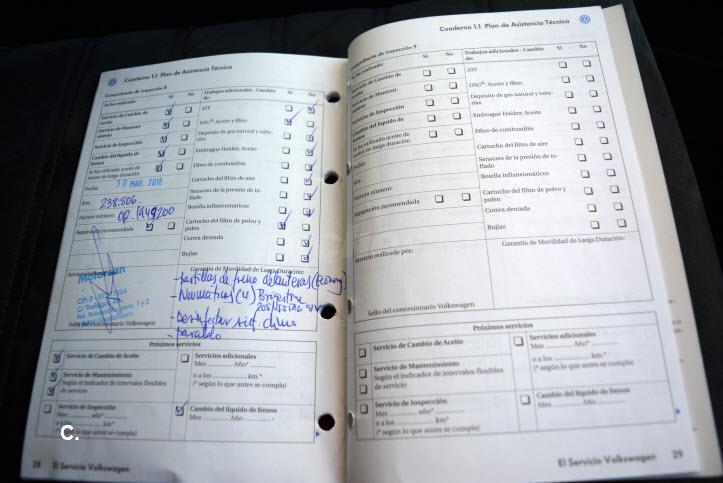 Cuaderno 1.1 Plan de Asistencia Técnica
Comprobante de inspección 8
Se ha realizado: Sí No
Servicio de Cambio de Aceite
Servicio de Mantenimiento
Servicio de Inspección
Cambio del líquido de frenos
Se ha utilizado aceite de motor de larga duración
Fecha: 30 MAR. 2016
Km: 238.806.
Factura número: OR.
Reparación recomendada
Trabajos adicionales - Cambio de: Sí No
ATF
DSG®: Aceite y filtro
Depósito de gas natural y tuberías
Embrague Haldex; Aceite
Filtro de combustible
Cartucho del filtro de aire
Sensores de la presión de inflado
Botella inflaneumáticos
Cartucho del filtro de polvo y polen
Correa dentada
Bujías
Garantía de Movilidad de Larga Duración:
-Pastillas de freno delanteras (Economy)
-Neumaticos (4)
-Desinfectar sist. clima
Sello del concesionario Volkswagen
Próximos servicios
Servicio de Cambio de Aceite
Servicio de Mantenimiento
Según el indicador de intervalos flexibles
de servicio
Servicio de Inspección
Mes ........ año* ........
o a los ........ km.*
(*según lo que antes se cumpla)
Servicios adicionales
Mes ........ Año* ........
o a los ........ km.*
(* según lo que antes se cumpla)
Cambio del líquido de frenos
Mes ........ Año ........
C.
28 El Servicio Volkswagen
Cuaderno 1.1 Plan de Asistencia Técnica
Comprobante de inspección 9
Se ha realizado: Sí No
Servicio de Cambio de Aceite
Servicio de Mantenimiento
Servicio de Inspección
Cambio del líquido de frenos
Se ha utilizado aceite de motor de larga duración
Fecha:
Km:
Factura número:
Reparación recomendada
Servicio realizado por:
Trabajos adicionales - Cambio de: Sí No
ATF
DSG®: Aceite y filtro
Depósito de gas natural y tuberías
Embrague Haldex; Aceite
Filtro de combustible
Cartucho del filtro de aire
Sensores de la presión de inflado
Botella inflaneumáticos
Cartucho del filtro de polvo y polen
Correa dentada
Bujías
Garantía de Movilidad de Larga Duración:
Sello del concesionario Volkswagen
Próximos servicios
Servicio de Cambio de Aceite
Servicio de Mantenimiento
Según el indicador de intervalos flexibles
de servicio
Servicio de Inspección
Mes ........ año* ........
o a los ........ km.*
(*según lo que antes se cumpla)
Servicios adicionales
Mes ........ Año* ........
o a los ........ km.*
(* según lo que antes se cumpla)
Cambio del líquido de frenos
Mes ........ Año ........
El Servicio Volkswagen 29